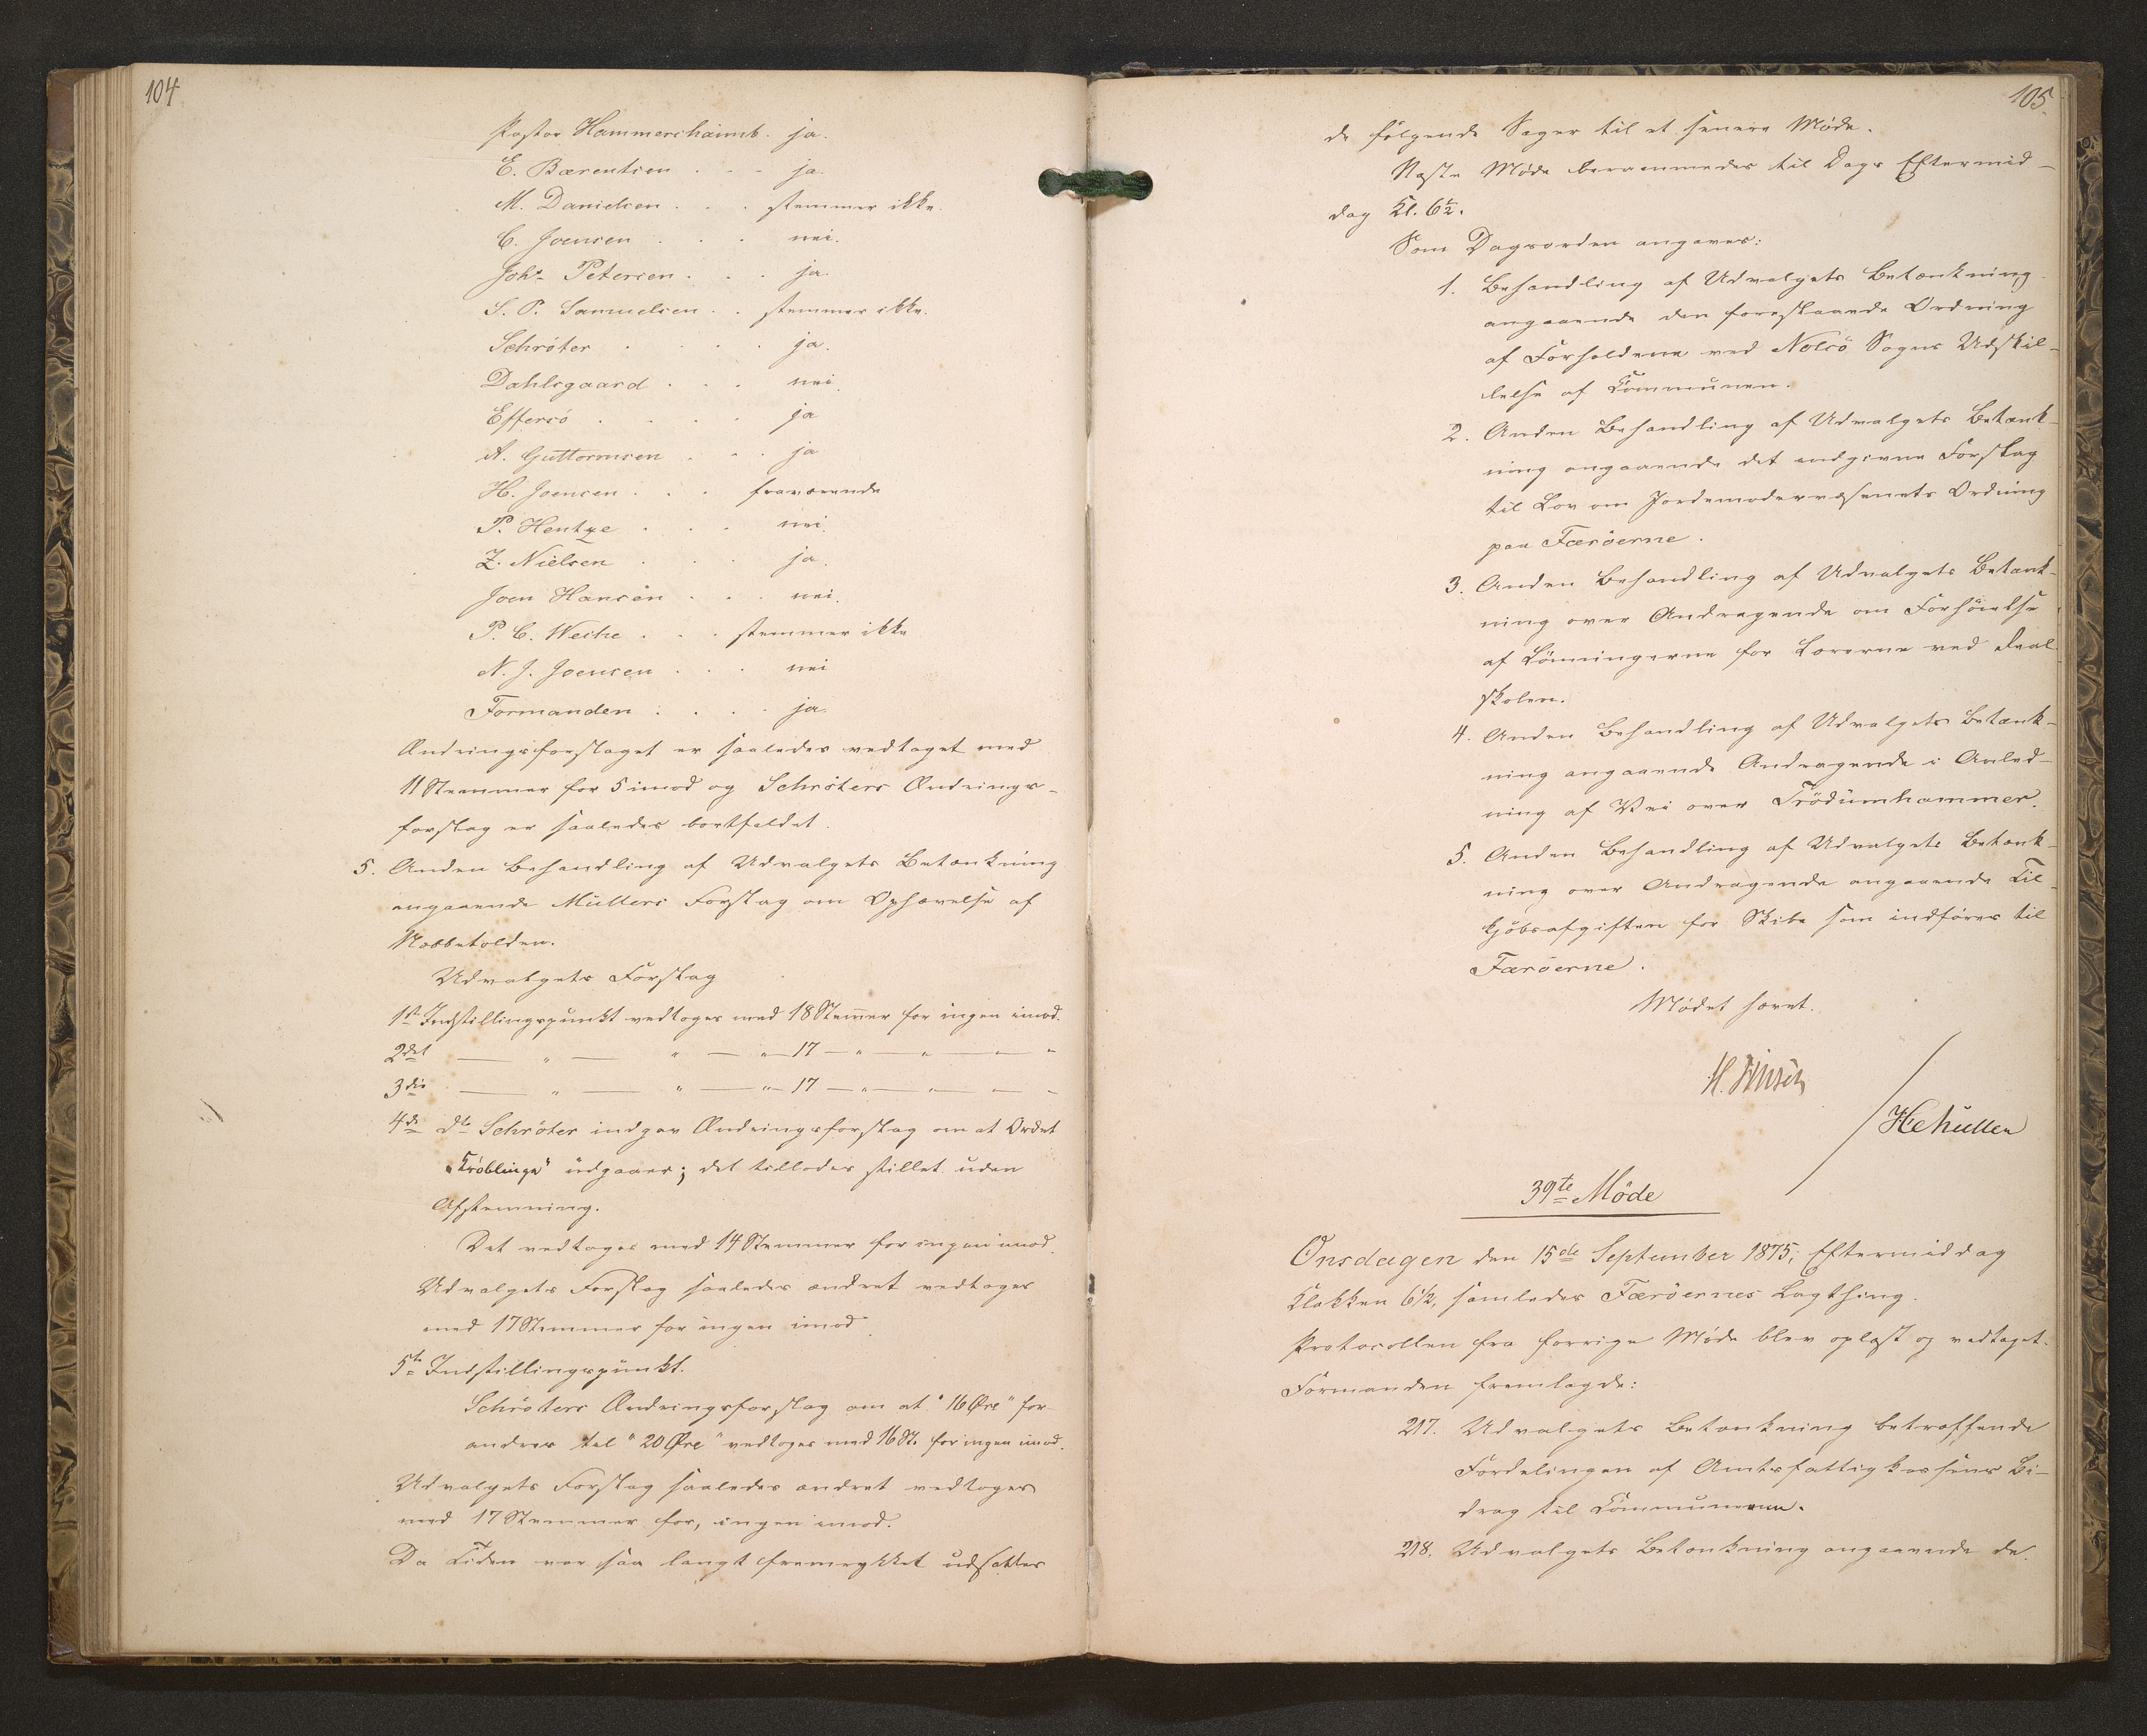 104
Pastor Hammershaimb. ja.
E. Bærentsen . . . ja.
M. Danielsen . . . stemmer ikke.
C. Joensen . . . nei.
Johs Petersen . . . ja.
S. P. Samuelsen . . stemmer ikke.
Schröter . . . . ja.
Dahlsgaard . . . nei.
Effersö . . . . ja
A. Guttormsen . . . ja
H. Joensen . . . fraværende
P. Hentze . . . nei.
Z. Nielsen . . . ja.
Joen Hansen . . . nei.
P. C. Weihe . . . stemmer ikke
N. J. Joensen . . . nei
Formanden . . . . ja.
Ændringsforslaget er saaledes vedtaget med
11 Stemmer for 5 imod og Schröters Ændrings-
forslag er saaledes bortfaldet.
5. Anden Behandling af Udvalgets Betænkning
angaaende Müllers Forslag om Ophævelse af
Næbbetolden.
Udvalgets Forslag
1ste Indstillingspunkt vedtoges med 18 Stemmer for ingen imod.
2det — " — " — " — 17 — " — " — " — "
3die — " — " — " — 17 — " — " — " — "
4de do Schröter indgav Ændringsforslag om at Ordet
"Kröblinge" udgaaer; det tillodes stillet uden
Afstemning.
Det vedtoges med 14 Stemmer for ingen imod.
Udvalgets Forslag saaledes ændret vedtoges
med 17 Stemmer for ingen imod.
5te Indstillingspunkt.
Schröters Ændringsforslag om at "16 Øre" for-
andres til "20 Øre" vedtoges med 16 St. for ingen imod.
Udvalgets Forslag saaledes ændret vedtoges
med 17 Stemmer for, ingen imod.
Da Tiden var saa langt fremrykket udsattes
105
de følgende Sager til et senere Møde.
Næste Møde berammedes til Dags Eftermid-
dag Kl. 6½.
Som Dagsorden angaves:
1. Behandling af Udvalgets Betænkning
angaaende den forestaaende Ordning
af Forholdene ved Nolsö Sogns Udskil-
lelse af Kommunen.
2. Anden Behandling af Udvalgets Betænk-
ning angaaende det indgivne Forslag
til Lov om Jordemodervæsenets Ordning
paa Færöerne.
3. Anden Behandling af Udvalgets Betænk-
ning over Andragende om Forhöielse
af Lönningerne for Lærerne ved Real-
skolen.
4. Anden Behandling af Udvalgets Betænk-
ning angaaende Andragende i Anled-
ning af Vei over Trödumhammer.
5. Anden Behandling af Udvalgets Betænk-
ning over Andragende angaaende Til-
kjöbsafgiften for Skibe som indføres til
Færöerne.
Mødet hævet.
H. Finsen
HC Müller
39te Möde
Onsdagen den 15de September 1875, Eftermiddag
Klokken 6½, samledes Færöernes Lagthing.
Protocollen fra forrige Møde blev oplæst og vedtaget.
Formanden fremlagde:
217. Udvalgets Betænkning betræffende
Fordelingen af Amtsfattigkassens Bi-
drag til Kommunerne.
218. Udvalgets Betænkning angaaende de